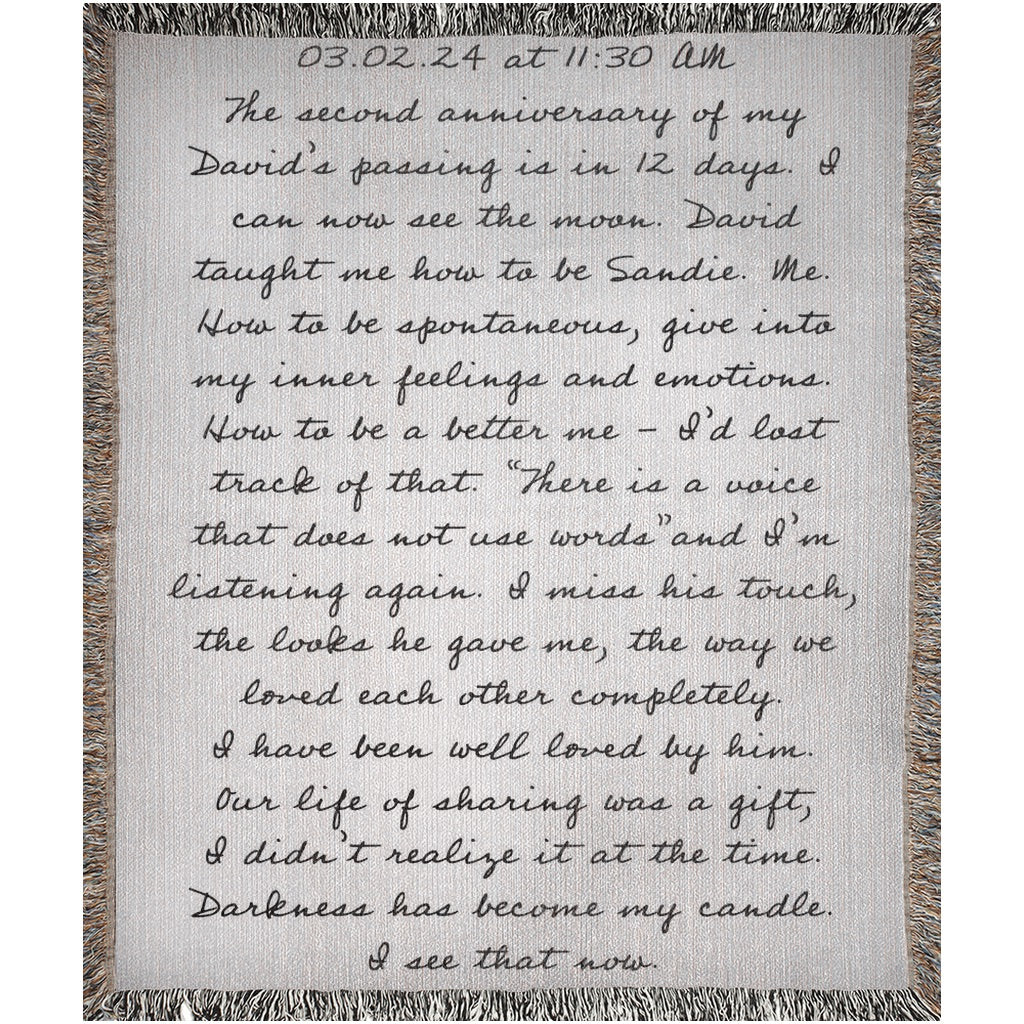 03.02.24 at 11:30 AM
The second anniversary of my
David's passing is in 12 days. I
can now see the moon. David
taught me how to be Sandie. Me.
How to be spontaneous, give into
my inner feelings and emotions.
How to be a better me - I'd lost
track of that. "There is a voice
that does not use words"and I'm
listening again. I miss his touch,
the looks he gave me, the way we
loved each other completely.
I have been well loved by him.
Our life of sharing was a gift,
I didn't realize it at the time.
Darkness has become my candle.
I see that now.